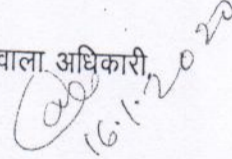 वाला अधिकारी,
16.1.2020